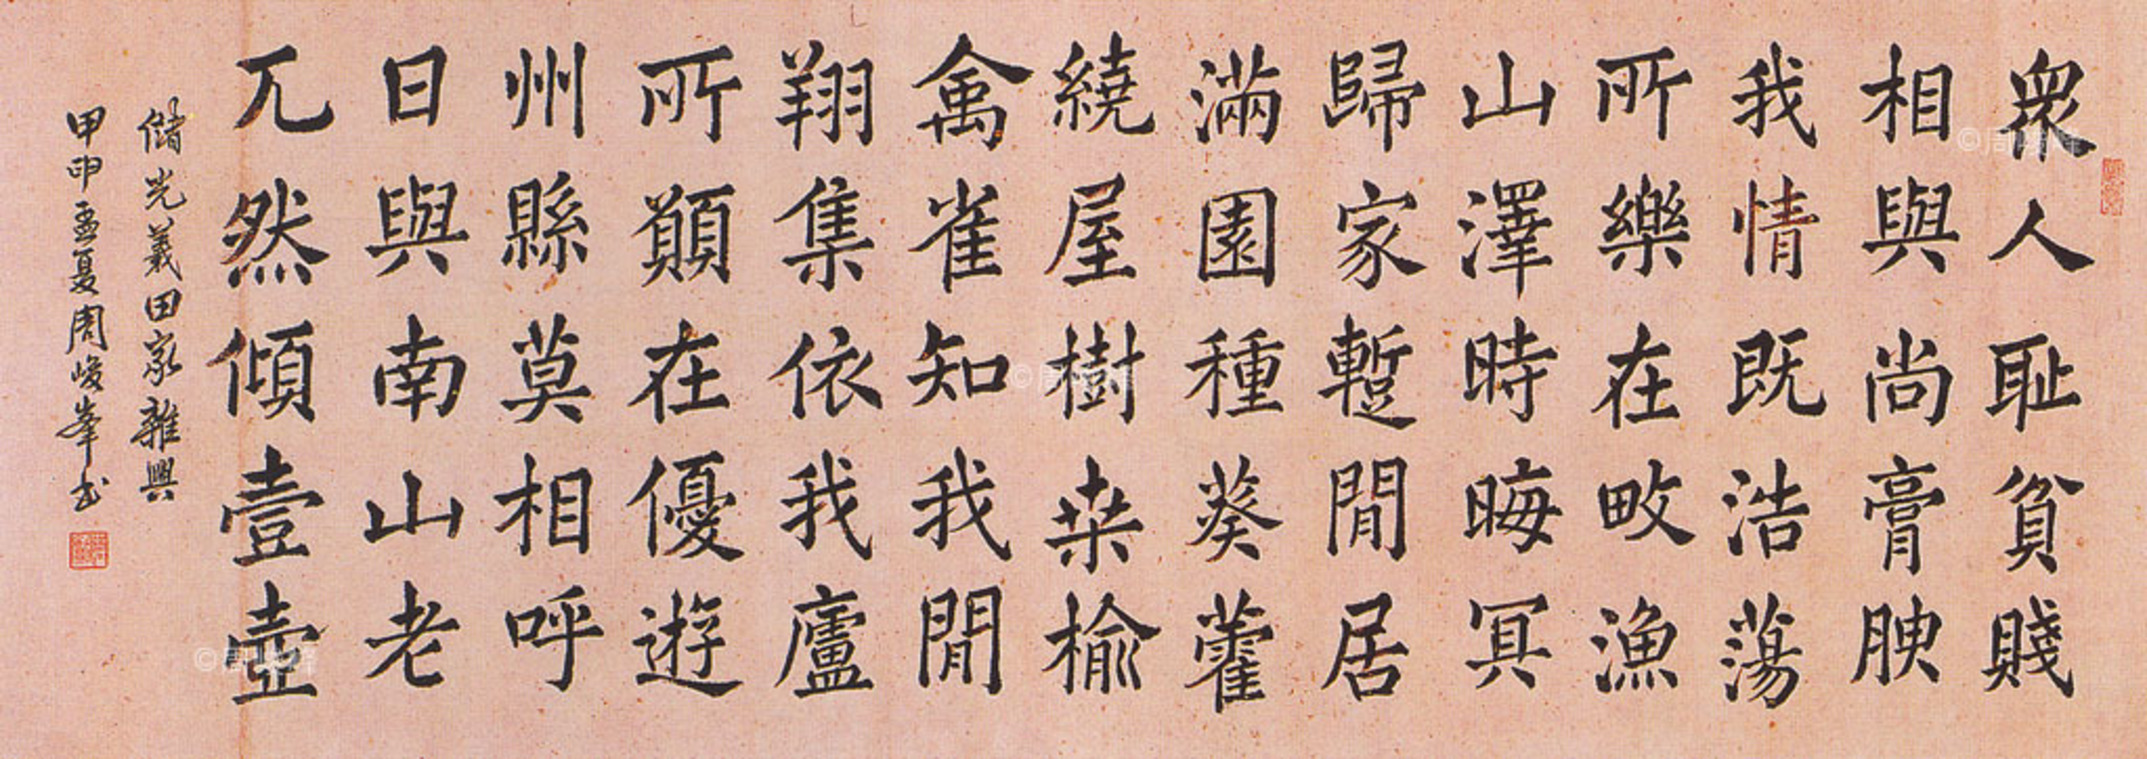 衆人耻貧賤
相與尚膏腴
我情既浩蕩
所樂在畋漁
山澤時晦冥
歸家蹔閒居
滿園種葵藿
繞屋樹桒榆
禽雀知我閒
翔集依我廬
所願在優遊
州縣莫相呼
日與南山老
兀然傾壹壺
儲光羲田家雜興
甲申孟夏周峻峯书